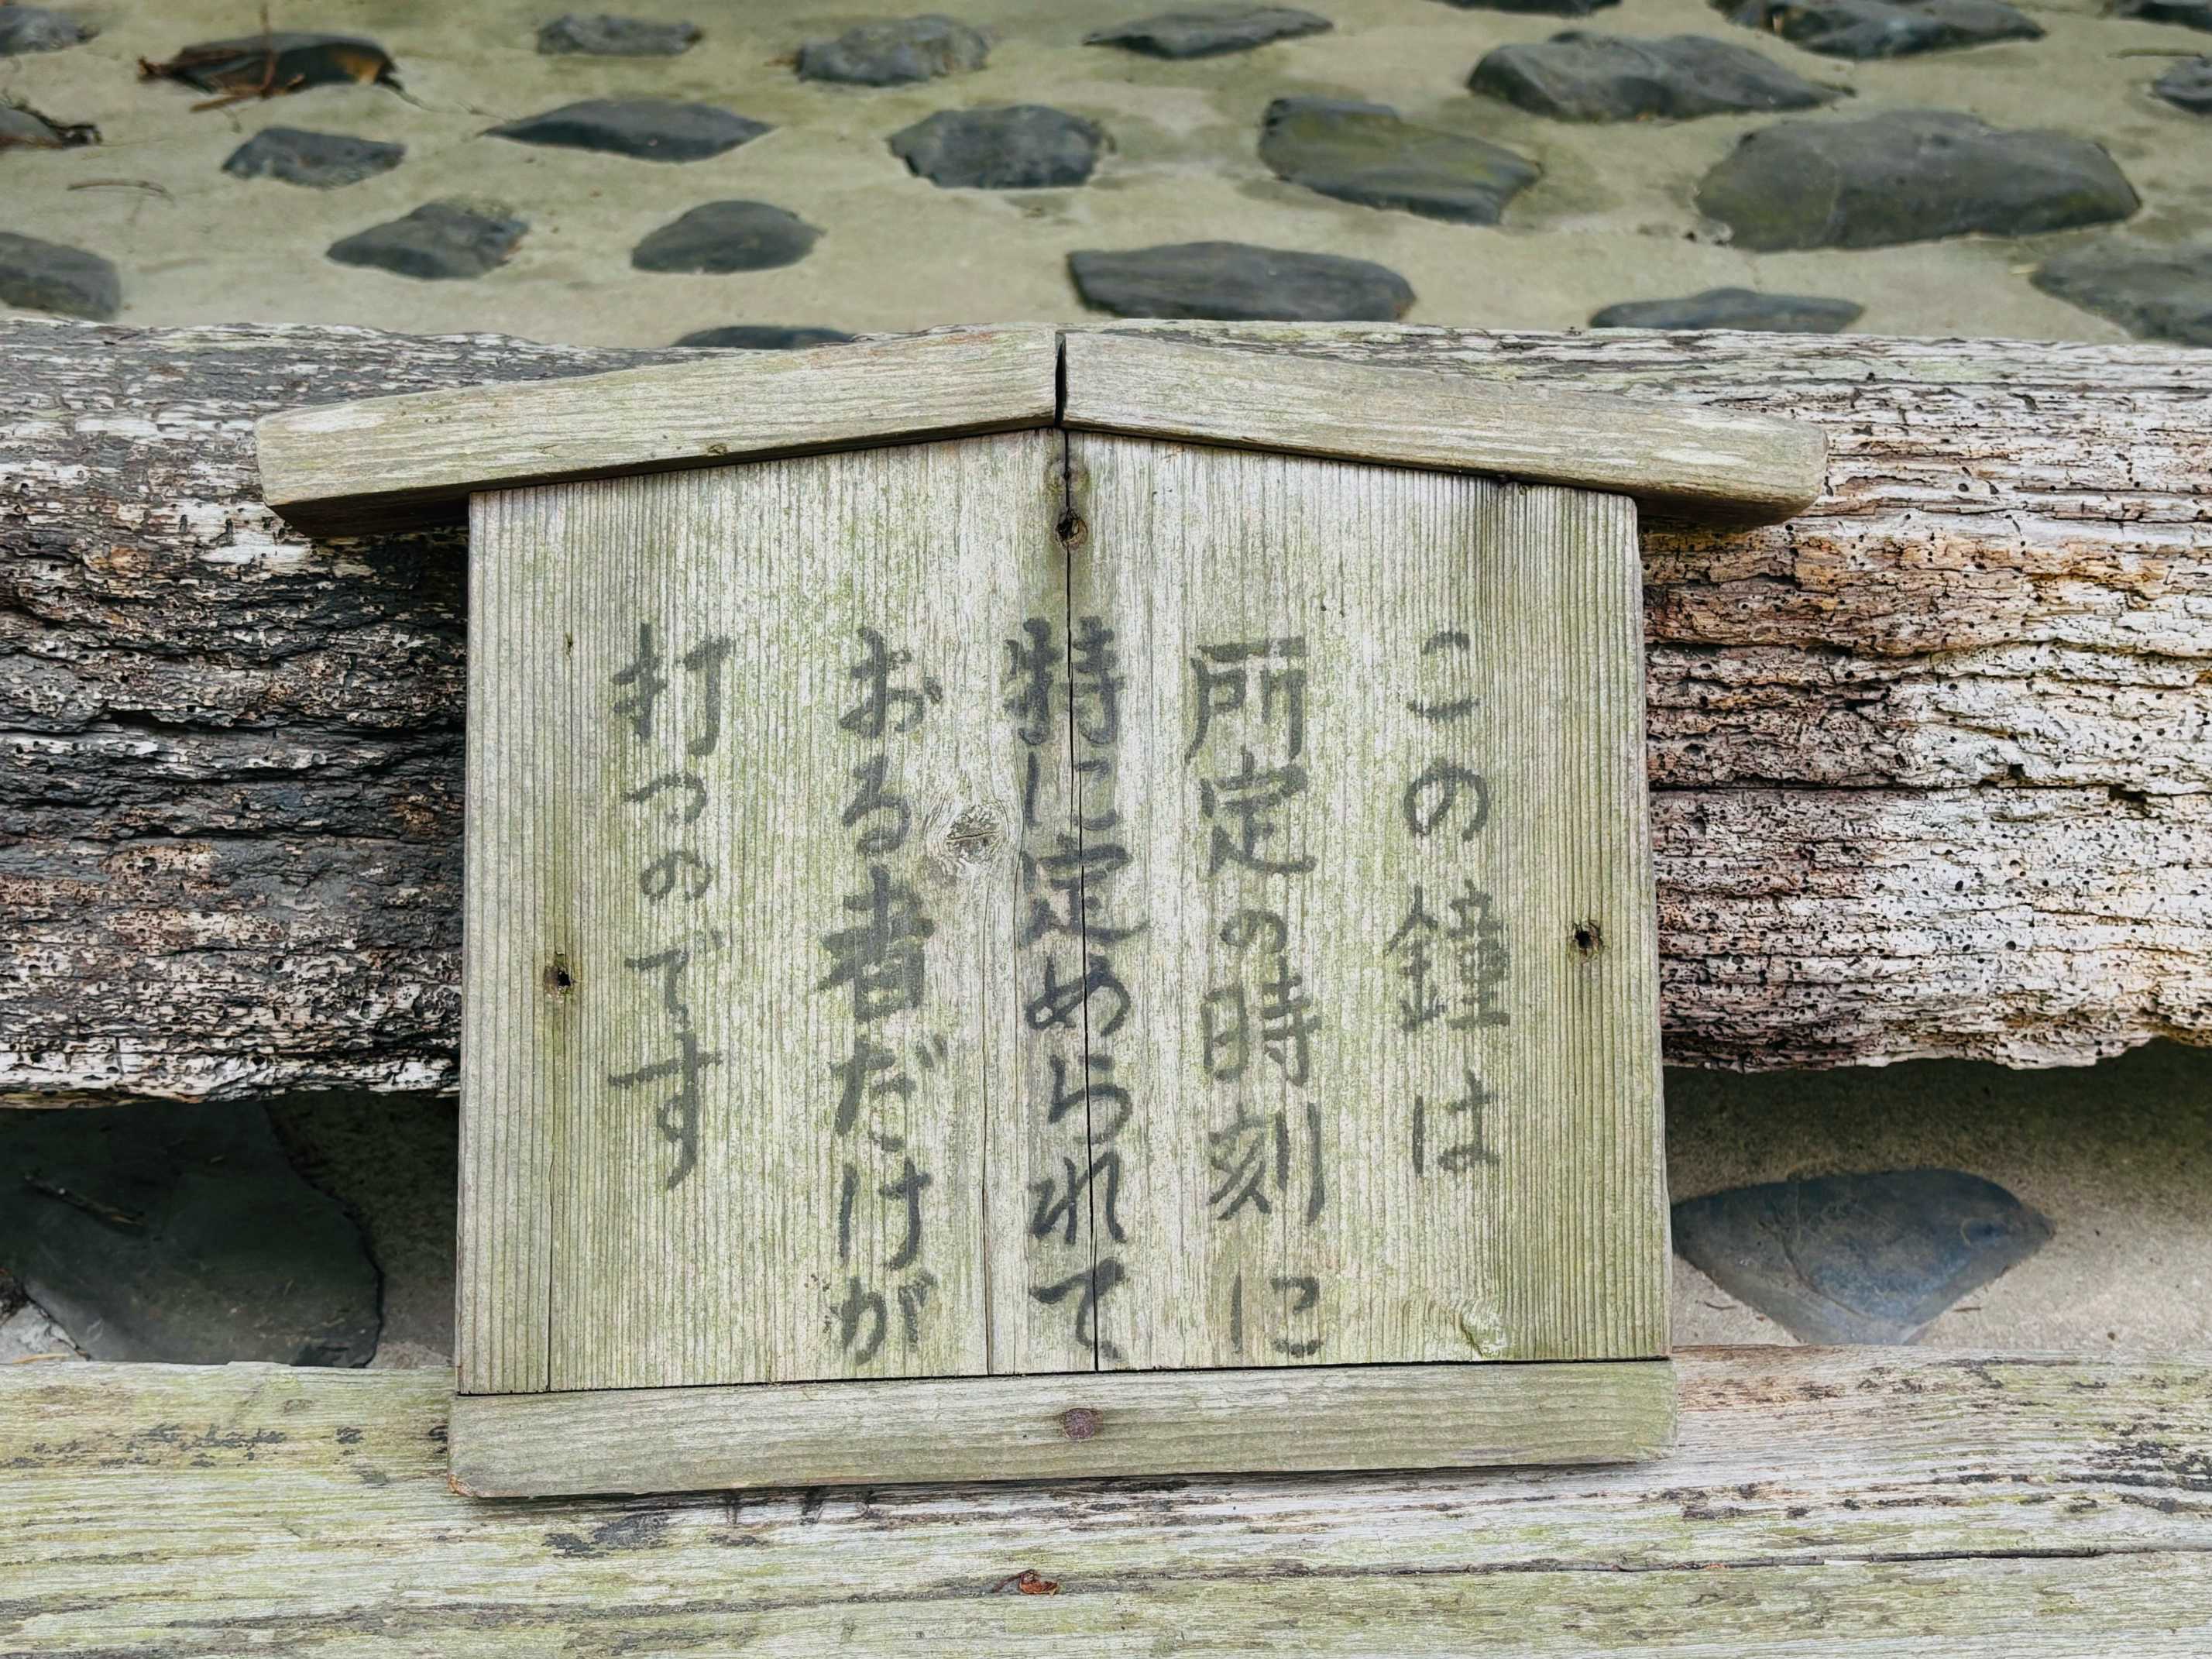 この鐘は
所定の時刻に
特に定められて
おる者だけが
打つのです